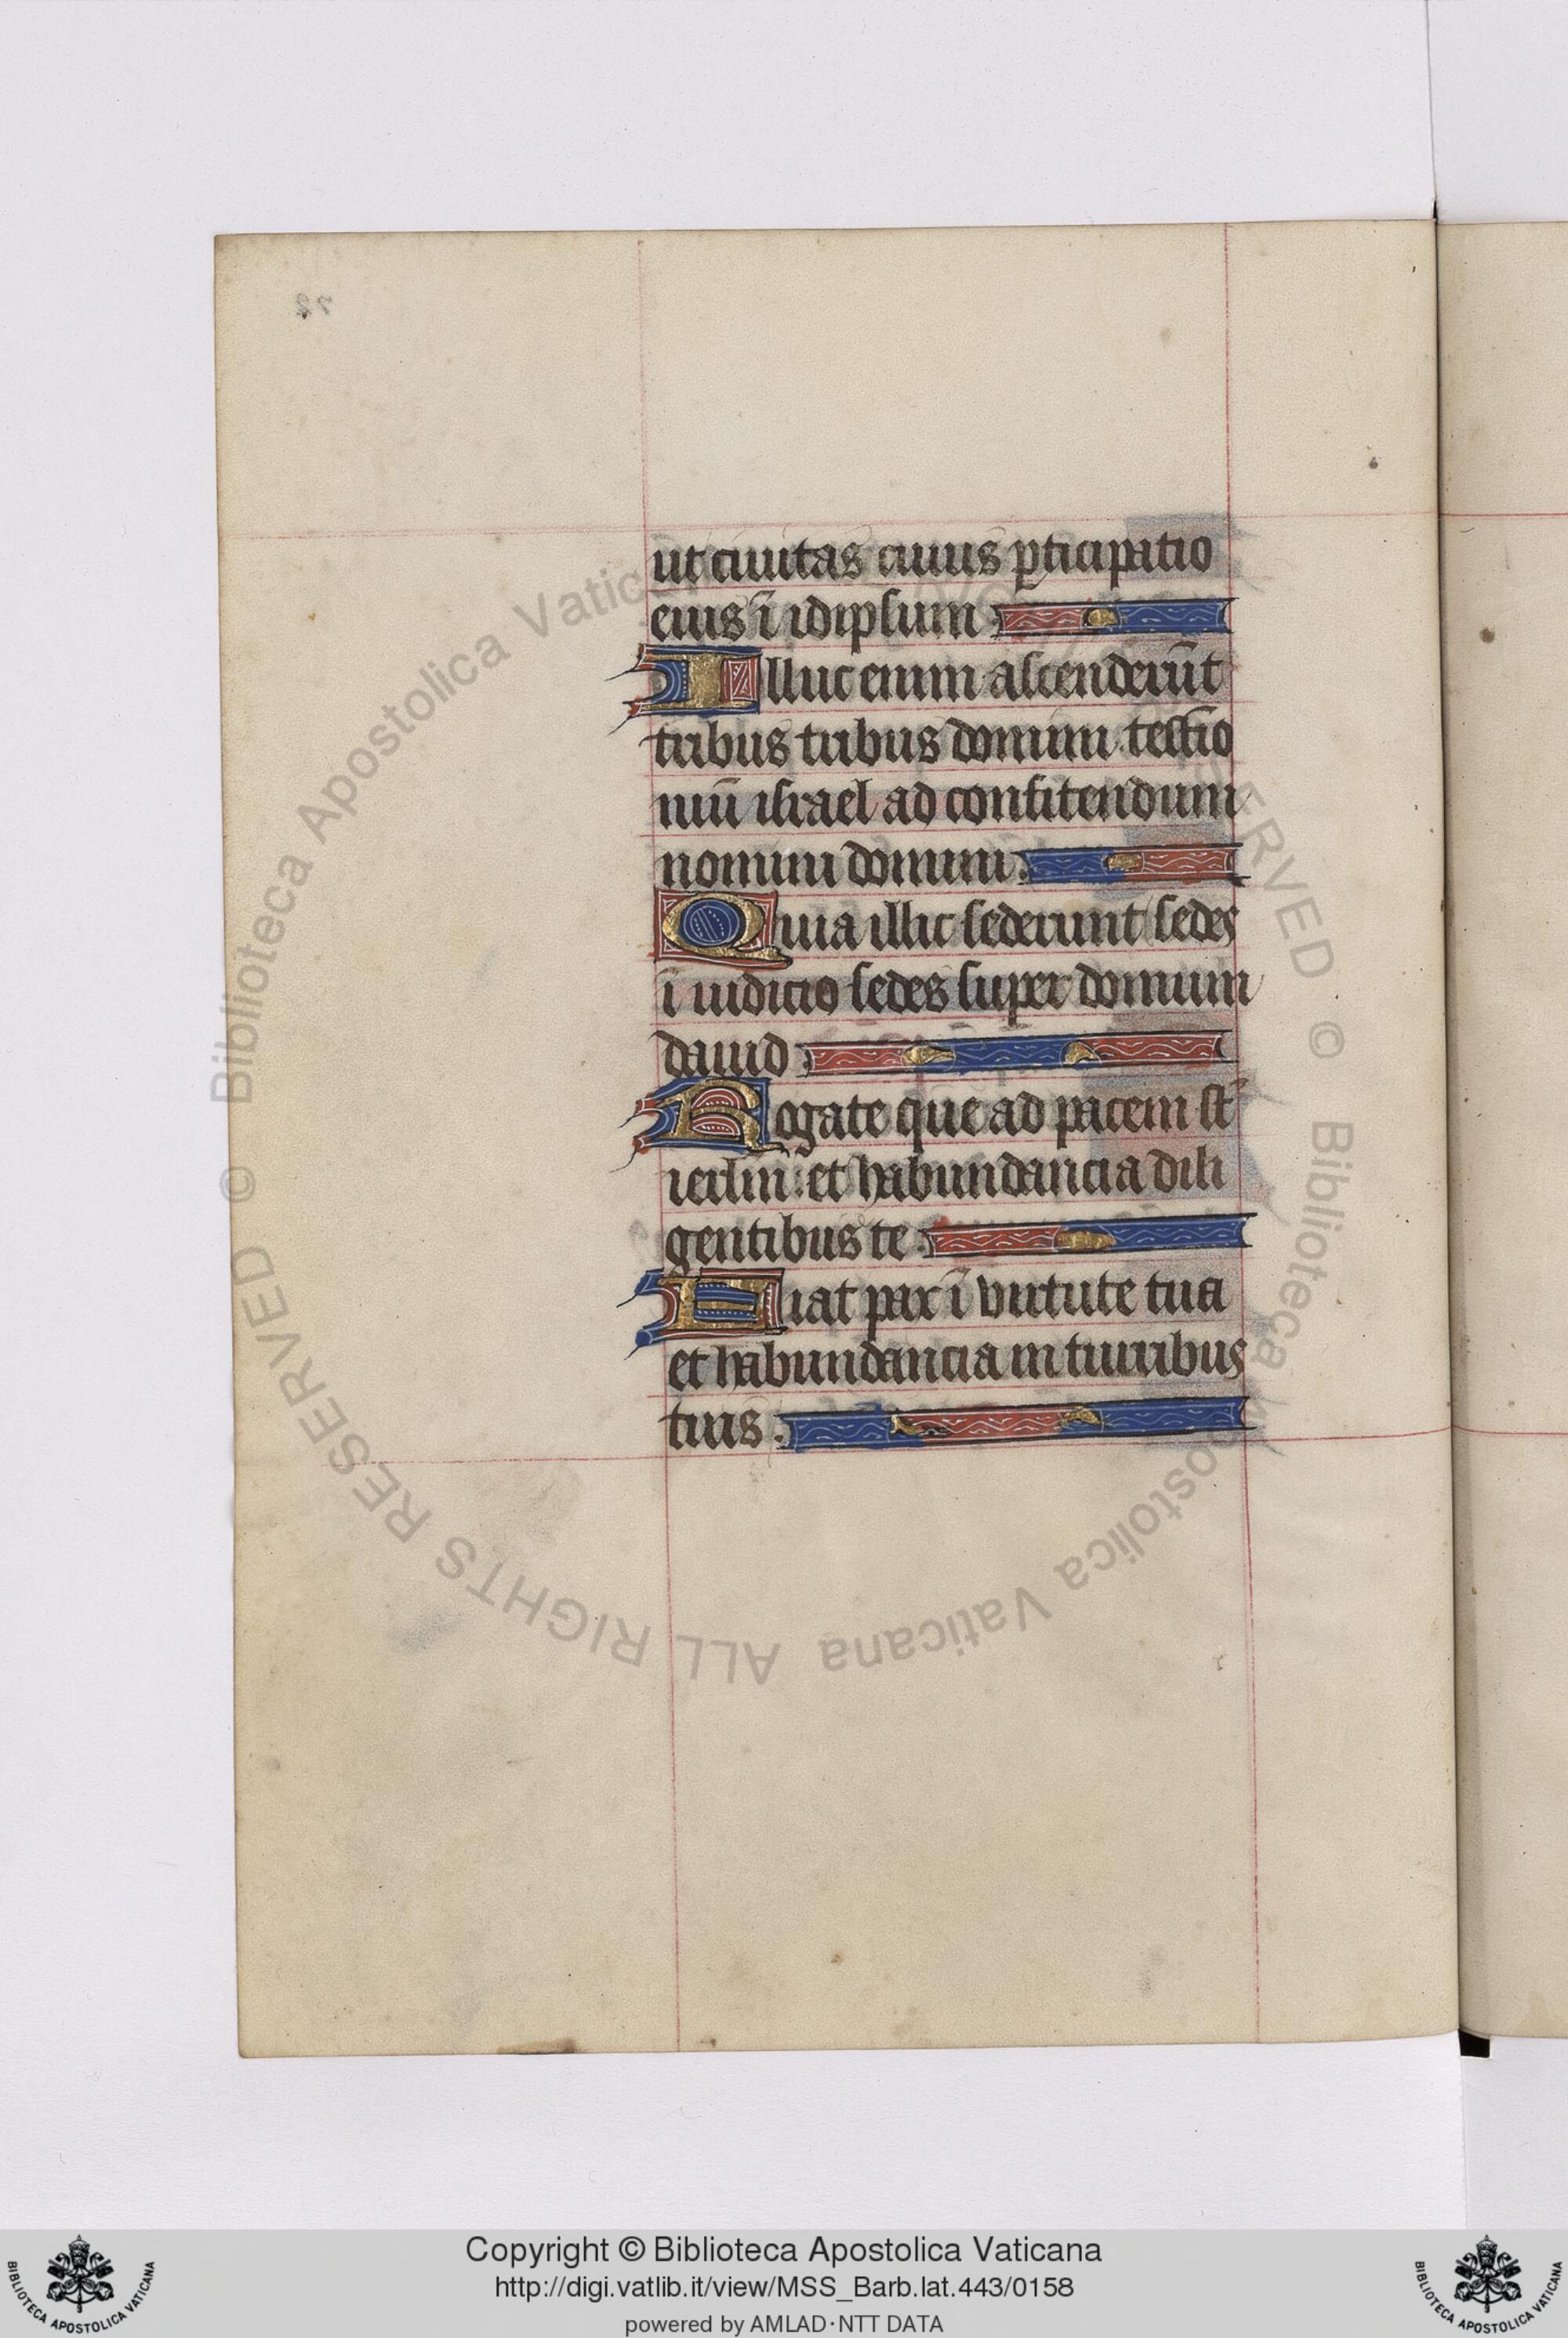 ut ciuitas cuius ꝑticipatio
eius ī idipsum
Illuc enim ascenderūt
tribus tribus domini testio
niū israel ad confitendum
nomini domini.
Quia illic sederunt sedes
ī iudicio sedes super domum
dauid.
Rogate que ad pacem st̄
ierlm̄: et habundancia dili
gentibus te.
Fiat pax ī virtute tua
et habundancia in turribus
tuis.
© Biblioteca Apostolica Vaticana ALL RIGHTS RESERVED © Biblioteca Apostolica Vaticana ALL RIGHTS RESERVED
Copyright © Biblioteca Apostolica Vaticana
http://digi.vatlib.it/view/MSS_Barb.lat.443/0158
powered by AMLAD·NTT DATA
BIBLIOTECA APOSTOLICA VATICANA
BIBLIOTECA APOSTOLICA VATICANA